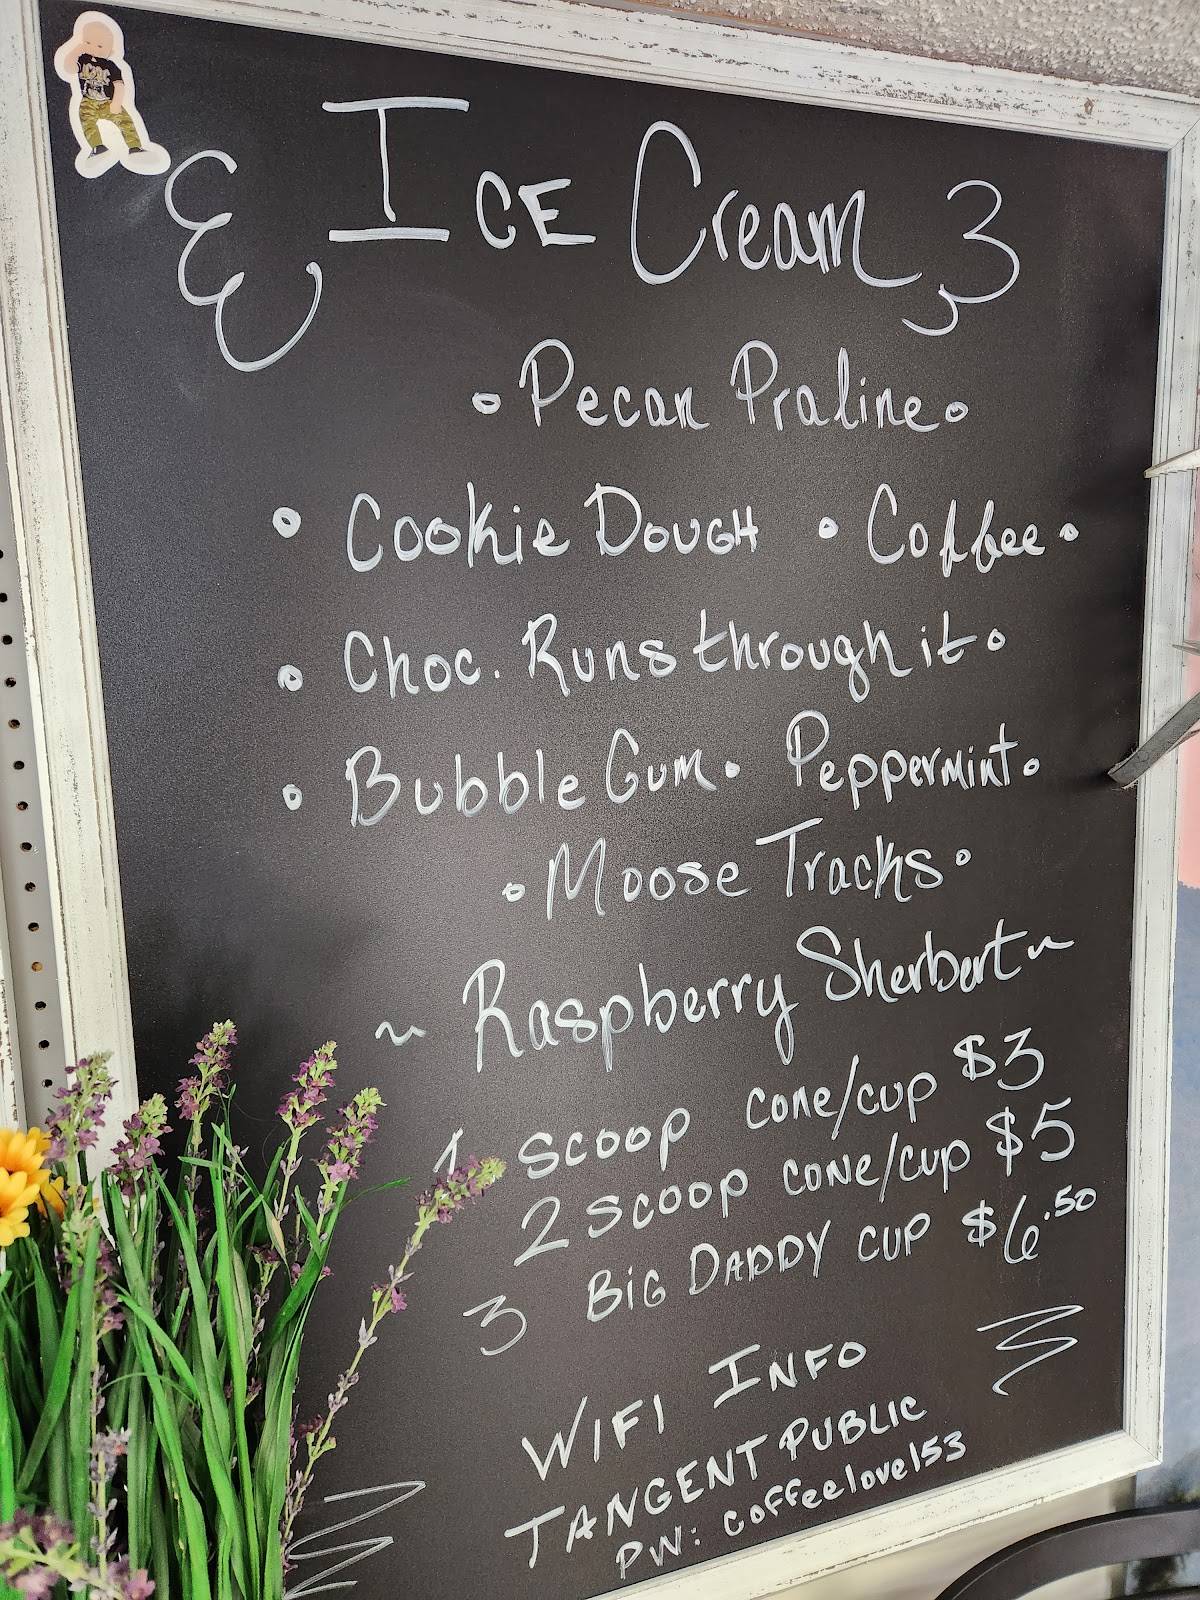 Ice Cream
• Pecan Praline •
• Cookie Dough • Coffee •
• Choc. Runs through it •
• Bubble Gum • Peppermint •
• Moose Tracks •
~ Raspberry Sherbert ~
1 scoop cone/cup $3
2 scoop cone/cup $5
3 Big Daddy cup $6.50
WIFI INFO
TANGENT PUBLIC
PW: coffeelove153